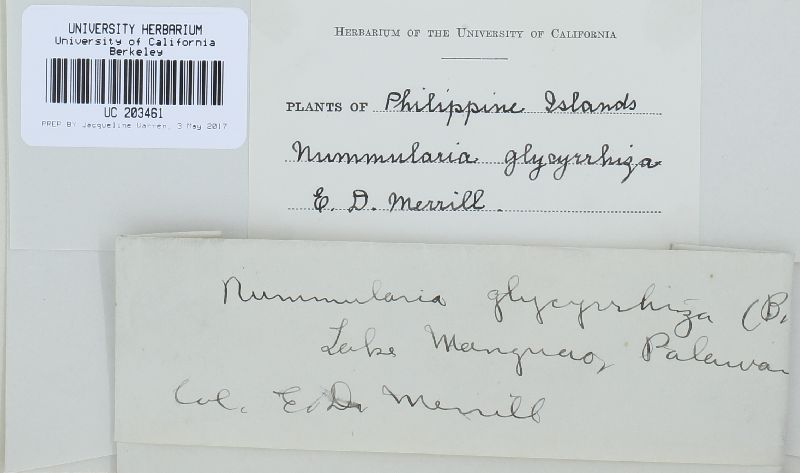 UNIVERSITY HERBARIUM
University of California
Berkeley
UC 203461
PREP BY Jacqueline Darren, 3 May 2017
HERBARIUM OF THE UNIVERSITY OF CALIFORNIA
PLANTS OF Philippine Islands
Nummularia glycyrrhiza
E. D. Merrill.
Nummularia glycyrrhiza (B.
Lake Manguao, Palawan
Col. E. D. Merrill